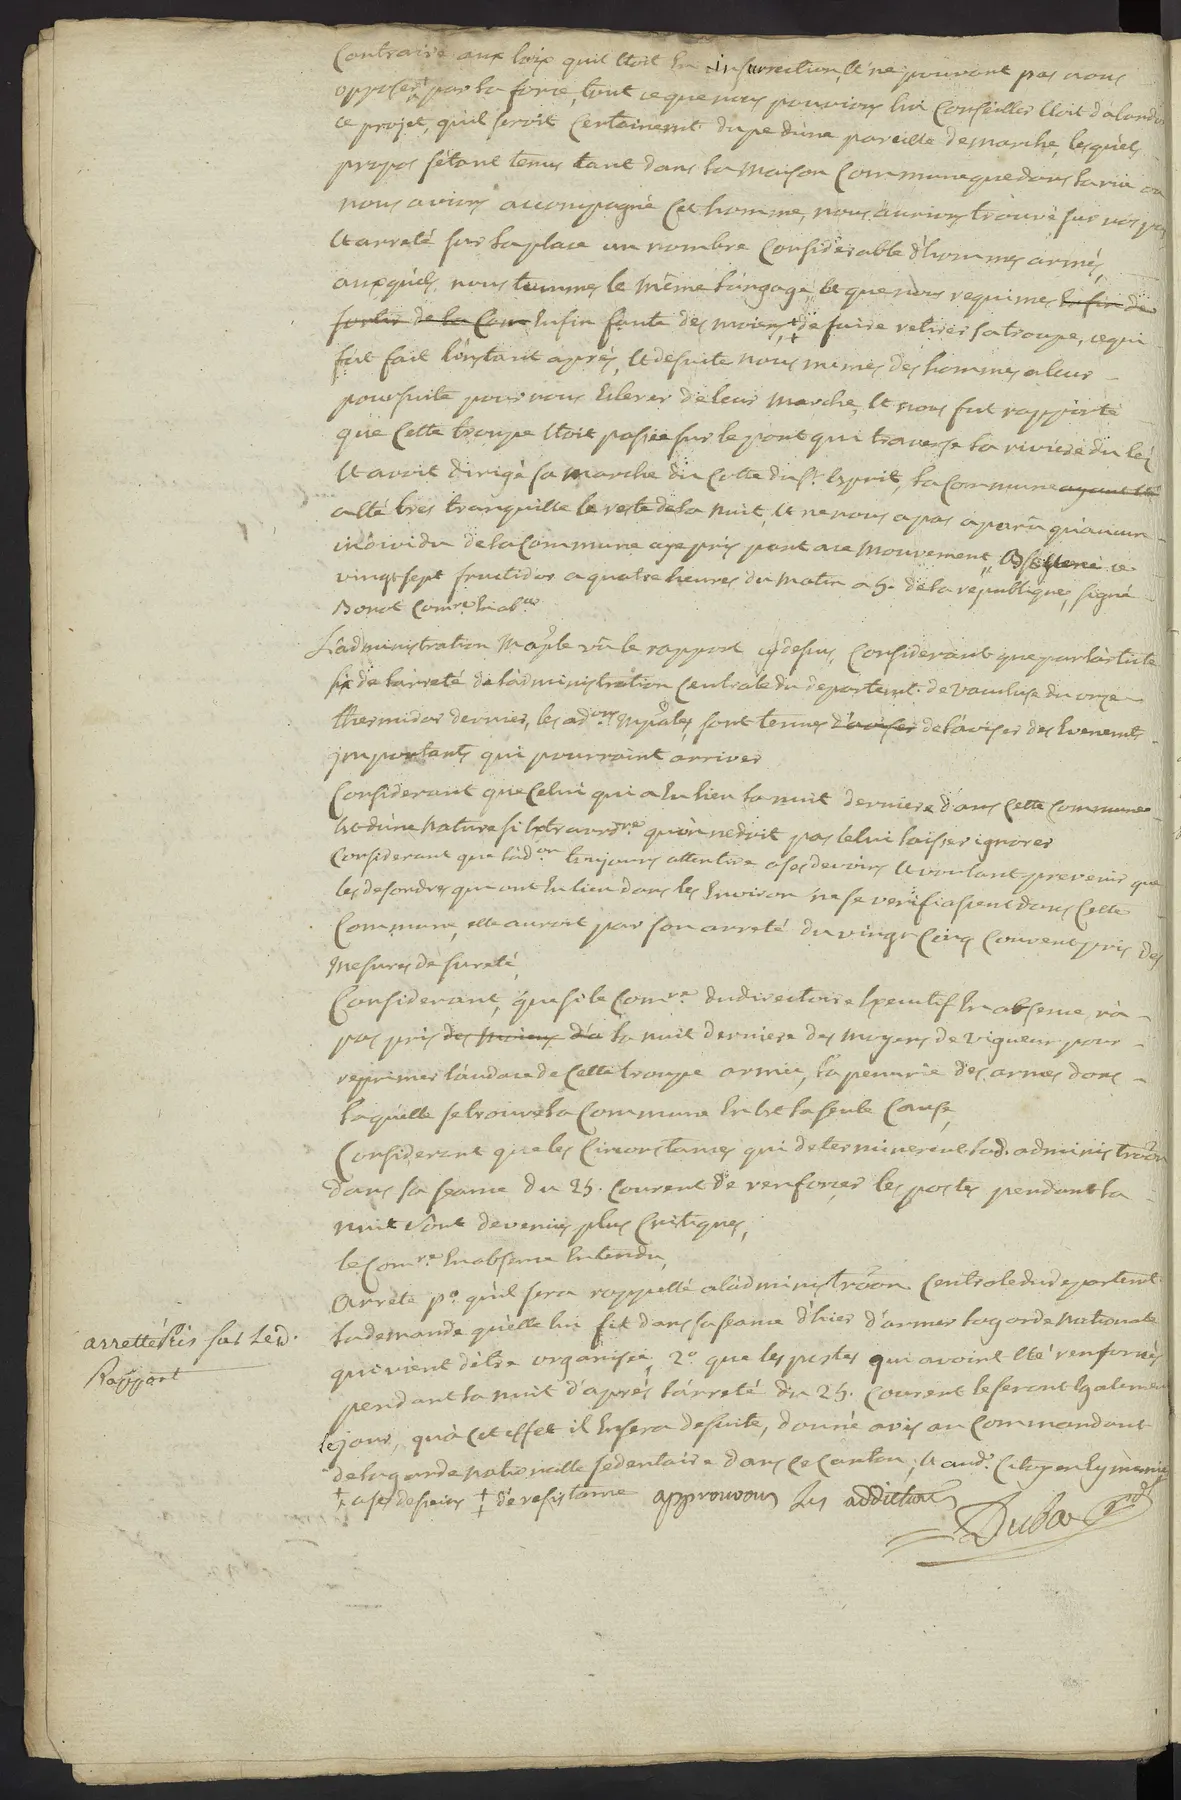 Contraire aux loix quil étoit en insurrection, et ne pouvant pas nous
opposer par la force, tout ce que nous pouvions lui Conseiller étoit dabandoner
ce projet, quil seroit Certainemt. dupe d'une pareille desmarche, lesquels
propos s'étant tenus tant dans la maison Commune que dans la rue ou
nous avions accompagné Cet homme, nous aurions trouvé sur nos pas
et arreté sur la place un nombre Considerable d'hommes armés,
auxquels nous tinmes le même langage, et que nous requimes enfin de
sortir de la Com enfin faute des moiens ‡ de faire retirer sa troupe, ce qui
fut fait l'instant après, et desuite nous mimes des hommes a leur
poursuite pour nous eclerer de leur marche, et nous fut rapporté
que Cette troupe étoit passée sur le pont qui traverse la riviere du lés
et avoit dirigé sa marche du Cotté du St. esprit, la Commune ayant été
a été très tranquille le reste de la nuit, et ne nous a pas aparu qu'aucun
individu de la Commune aye pris part a ce mouvement, ce
vingt sept fructidor a quatre heures du matin a 5. de la république, signé
Bonot Comre. en abce.
L'administration Mople vu le rapport cy dessus, Considerant que par l'article
six de l'arreté de l'administration Centrale du departemt. de vaucluse du onze
thermidor dernier, les adons. Mpales, sont tenues d'aviser de l'aviser des evenemts.
importants qui pourraint arriver
Considerant que Celui qui a eu lieu la nuit derniere dans Cette Commune
est d'une nature si extraordre. qu'on ne doit pas le lui laisser ignorer
Considerant que l'adon. toujours attentive a ses devoirs et voulant prevenir que
les desordres qui ont eu lieu dans les environ ne se verifiassent dans Cette
Commune, elle auroit par son arreté du vingt Cinq Courent pris des
mesures de sureté,
Considerant, que si le Comre. du directoire executif en absence, n'a
pas pris des moiens d'a la nuit derniere des moyens de vigueur pour
reprimer l'audace de Cette troupe armée, la penurie des armes dans
laquelle se trouve la Commune en est la seule Cause,
Considerant que les Circonstances qui determinerent lad. administraon
dans sa seance du 25. Courent de renforcer les postes pendant la
nuit sont devenues plus Critiques,
le Comre. en absence entendu,
Arrete po. qu'il sera rappellé a l'administraon Centrale du departemt.
la demande qu'elle lui fit dans sa seance d'hier d'armer la garde nationale
qui vient d'être organisée, 2o. que les postes qui avoint été renforcés
pendant la nuit d'après l'arreté du 25. Courent le seront egalement
le jour, qu'à Cet effet il en sera desuite, donné avis au Commandant
de la garde nationalle sedentaire dans ce Canton, et aud. Citoyen
‡ a ses desseins ‡ de resistance approuvons les additions
Dubar
arretté Pris sur Led.
Rapport